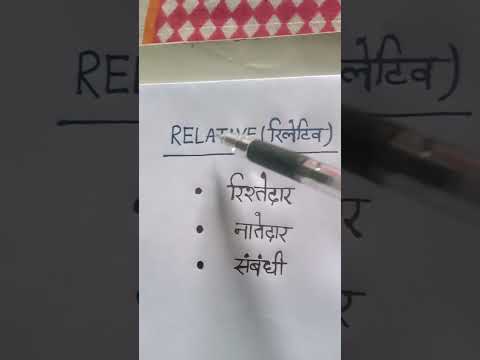 RELATIVE (रिलेटिव)
• रिश्तेदार
• नातेदार
• संबंधी